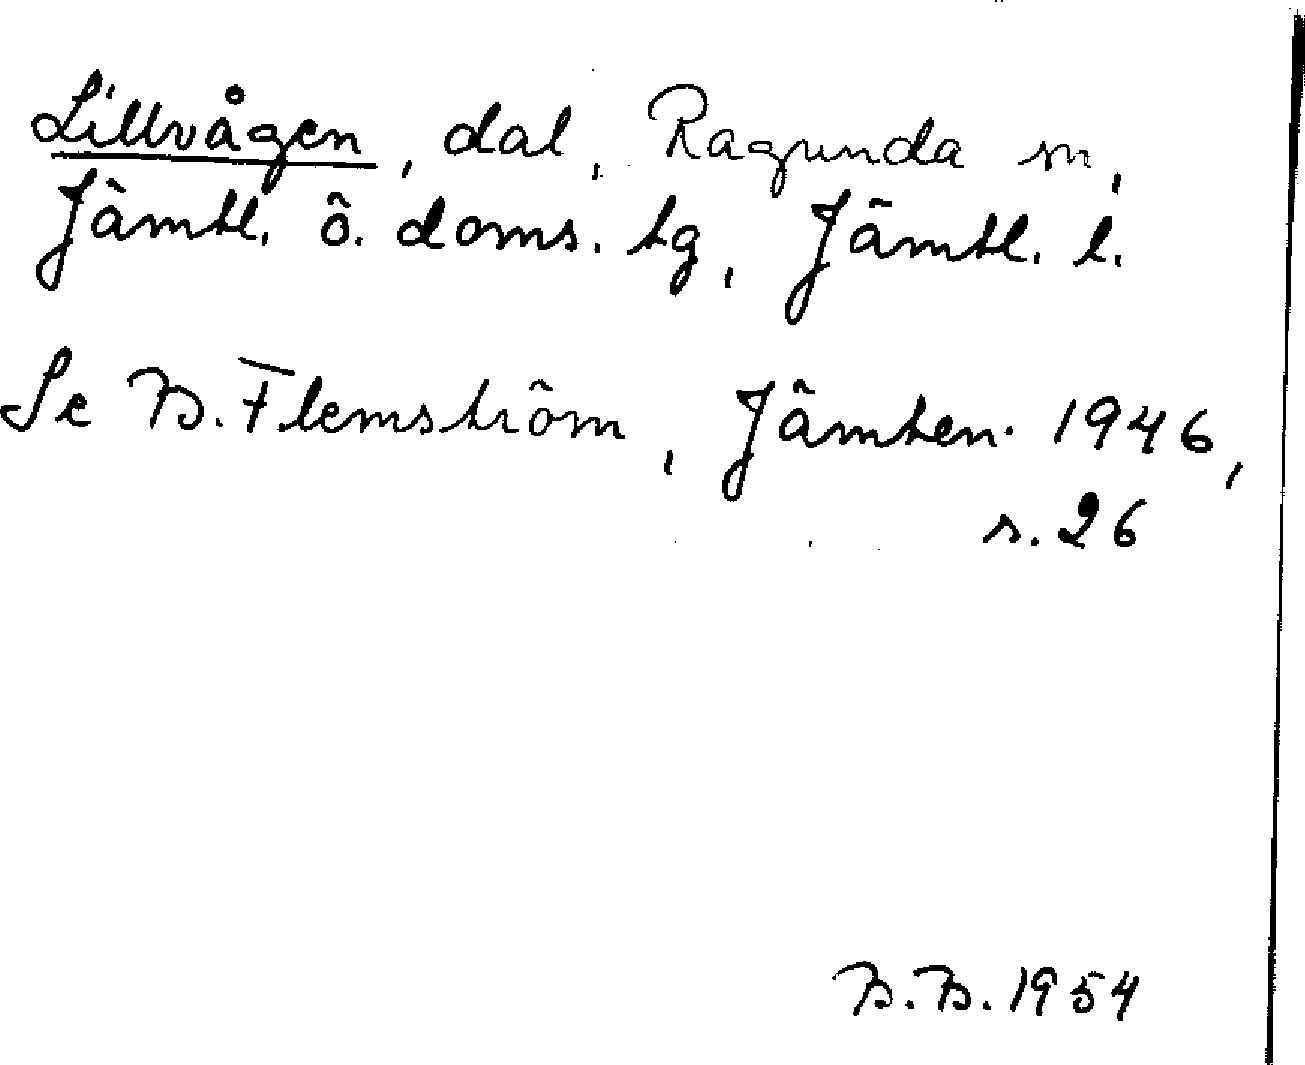 Lillvågen, dal, Ragunda sn,
Jämtl. ö. doms. tg, Jämtl. l.
Se B. Flemström, Jämten 1946,
s. 26
B. B. 1954